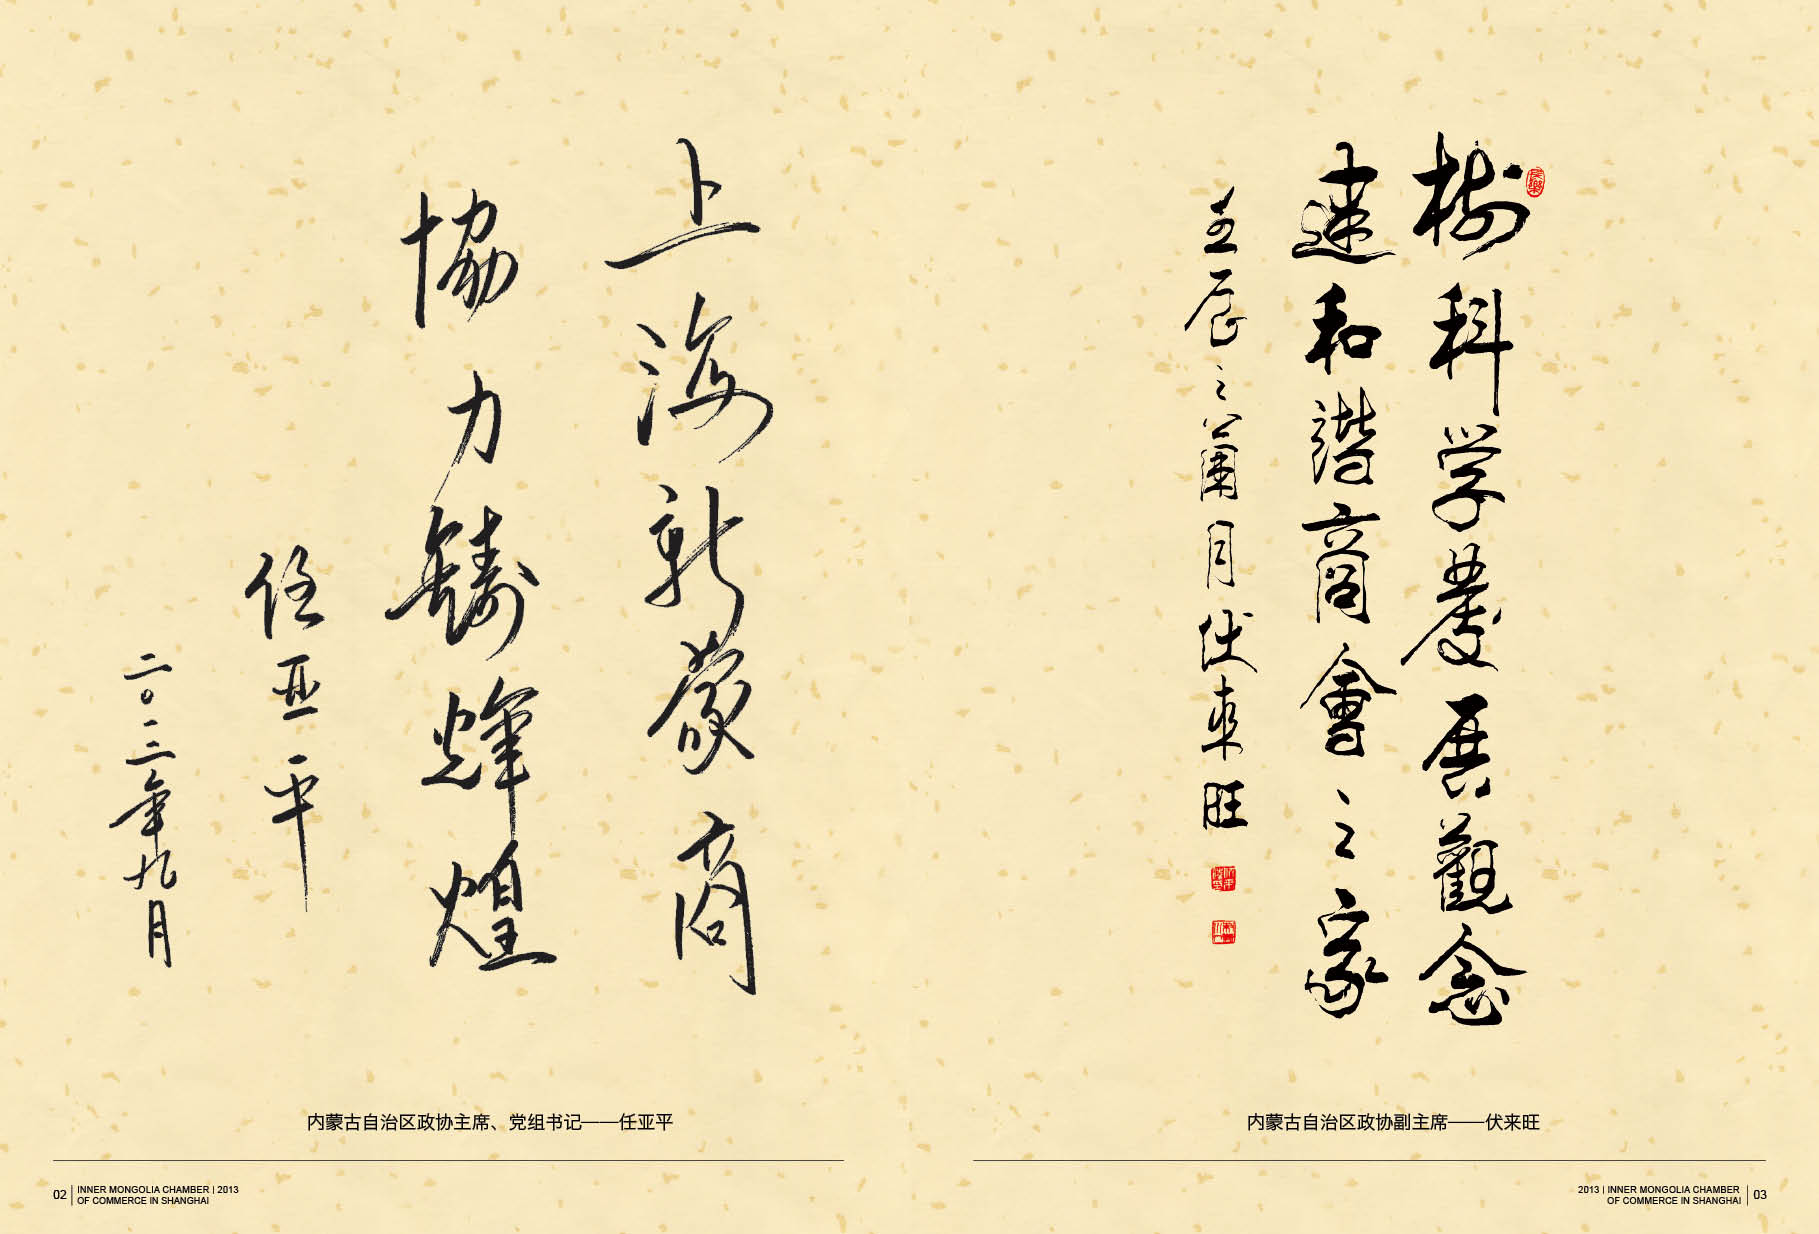 上海新蒙商
協力鑄輝煌
任亚平
二〇一三年九月
内蒙古自治区政协主席、党组书记——任亚平
02 INNER MONGOLIA CHAMBER | 2013
OF COMMERCE IN SHANGHAI
樹科学發展觀念
建和諧商會之家
壬辰之蘭月伏来旺
内蒙古自治区政协副主席——伏来旺
2013 | INNER MONGOLIA CHAMBER
OF COMMERCE IN SHANGHAI 03